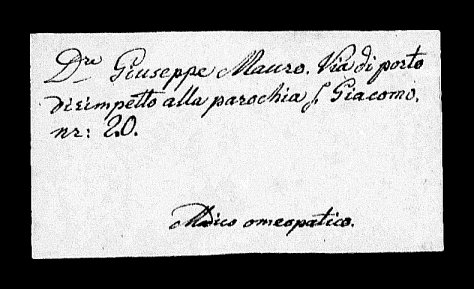 Dre Giuseppe Mauro. Via di porto
dirimpetto alla parochia S. Giacomo.
nr: 20.
Medico omeopatico.